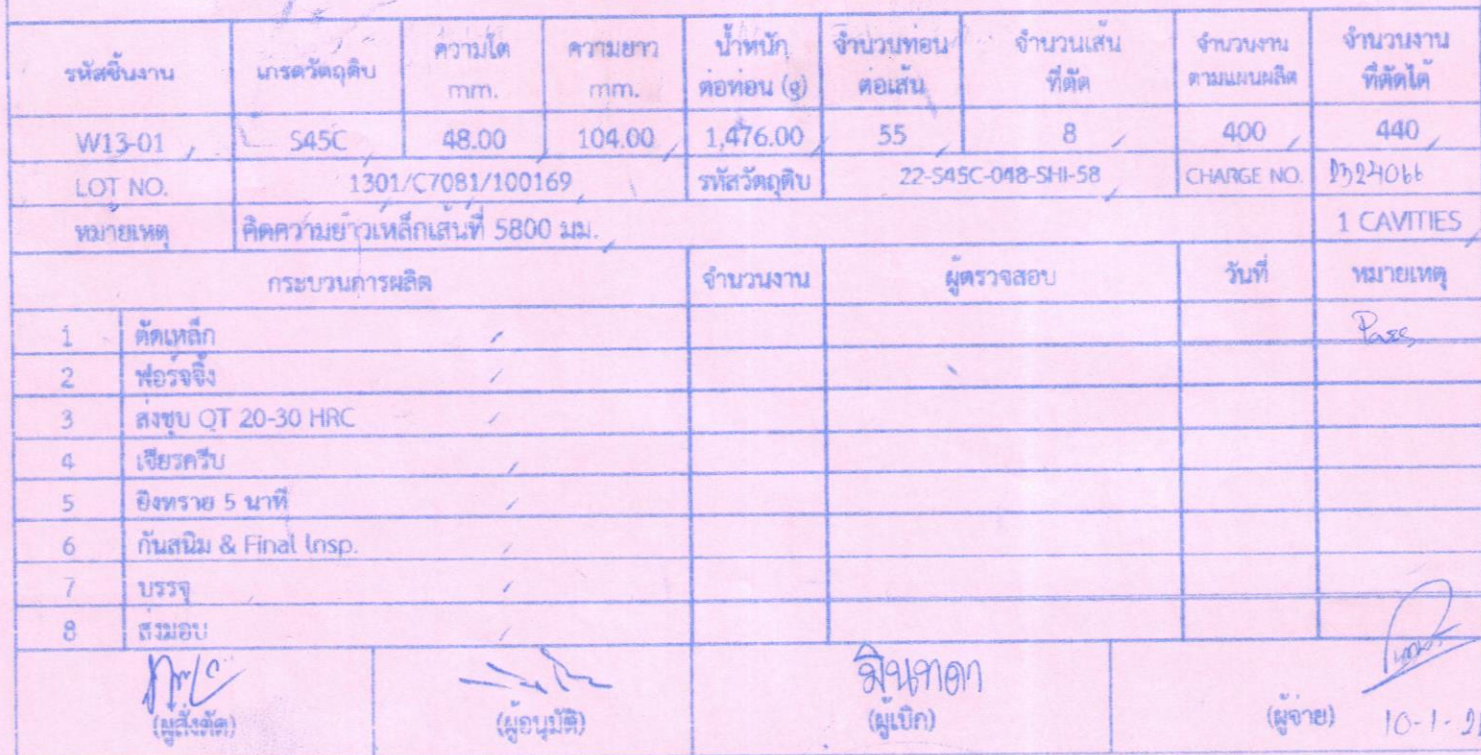 รหัสชิ้นงาน เกรดวัตถุดิบ ความโต mm. ความยาว mm. น้ำหนัก ต่อท่อน (g) จำนวนท่อน ต่อเส้น จำนวนเส้น ที่ตัด จำนวนงาน ตามแผนผลิต จำนวนงาน ที่ตัดได้
W13-01 S45C 48.00 104.00 1,476.00 55 8 400 440
LOT NO. 1301/C7081/100169 รหัสวัตถุดิบ 22-S45C-048-SHI-58 CHARGE NO. 2324066
หมายเหตุ คิดความยาวเหล็กเส้นที่ 5800 มม. 1 CAVITIES
กระบวนการผลิต จำนวนงาน ผู้ตรวจสอบ วันที่ หมายเหตุ
1 ตัดเหล็ก Pass
2 ฟอร์จจิ้ง
3 ส่งชุบ QT 20-30 HRC
4 เจียรครีบ
5 ยิงทราย 5 นาที
6 กันสนิม & Final Insp.
7 บรรจุ
8 ส่งมอบ
มินทดา
(ผู้สั่งตัด) (ผู้อนุมัติ) (ผู้เบิก) (ผู้จ่าย) 10-1-2